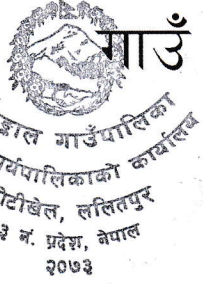 गाउँ
ङाल गाउँपालिका
र्यपालिकाको कार्यालय
ोटीखेल, ललितपुर
३ नं. प्रदेश, नेपाल
२०७३